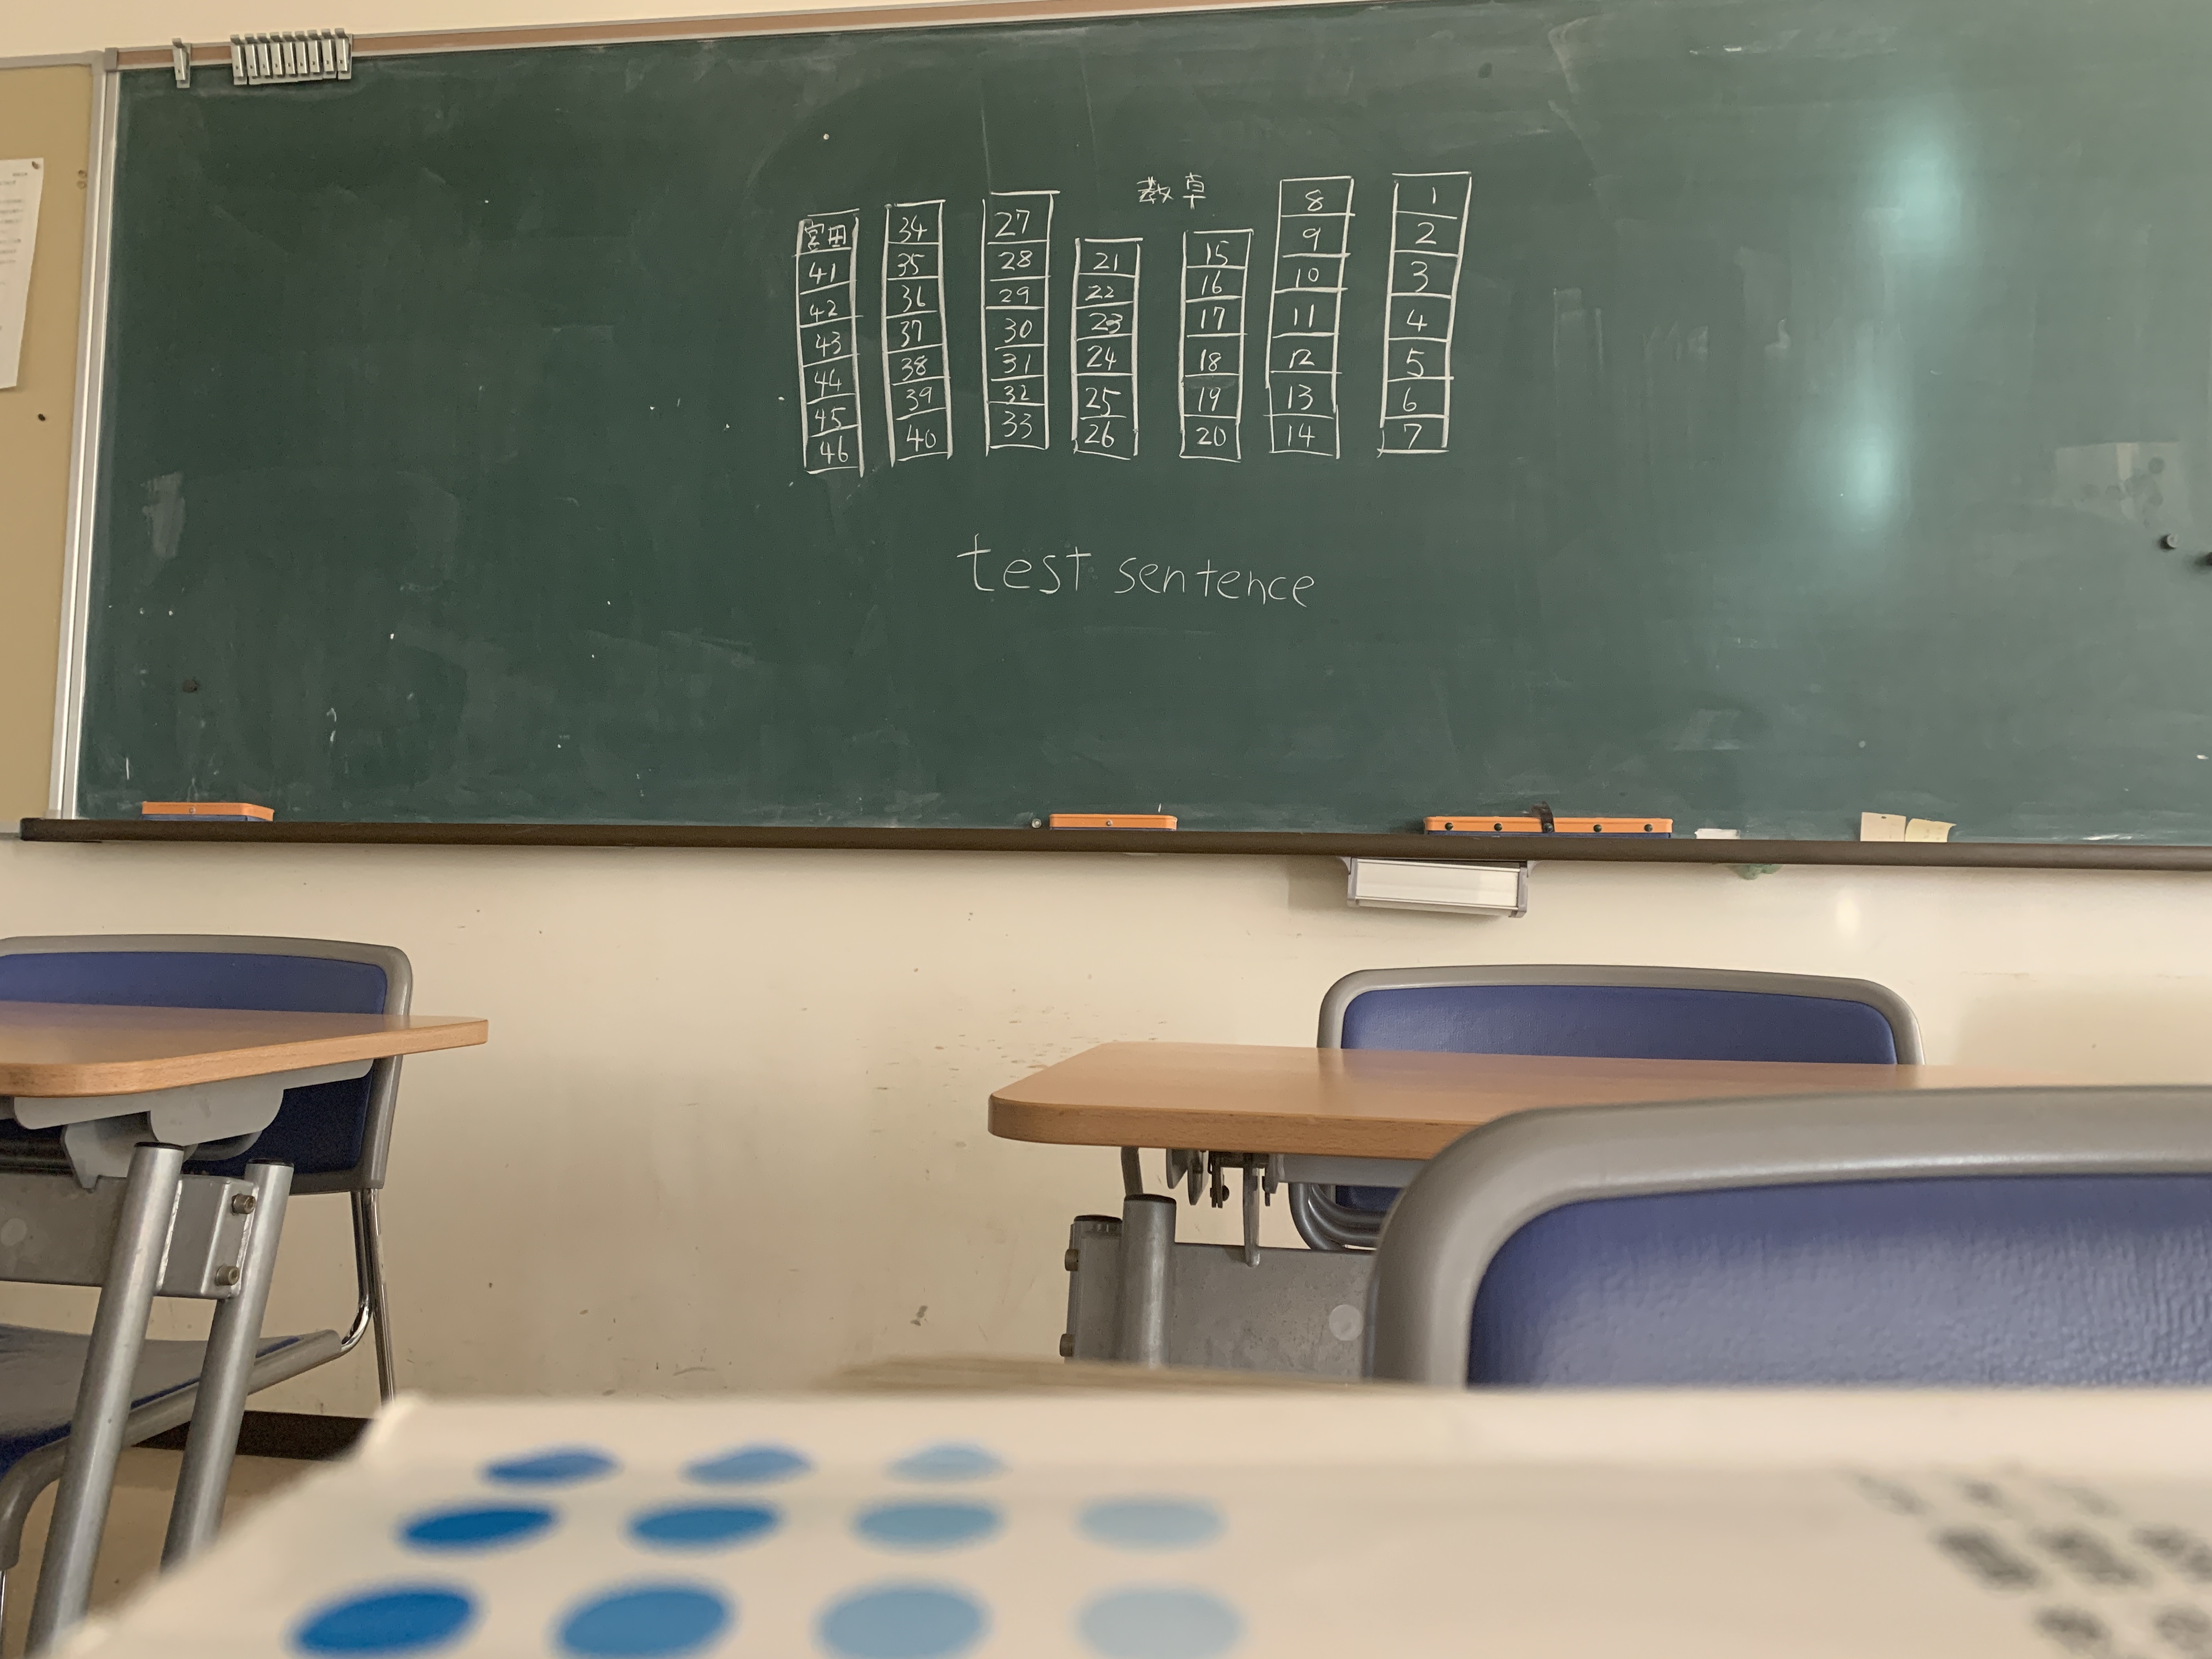 教卓
宮田 34 27 21 15 8 1
41 35 28 22 16 9 2
42 36 29 23 17 10 3
43 37 30 24 18 11 4
44 38 31 25 19 12 5
45 39 32 26 20 13 6
46 40 33 14 7
test sentence